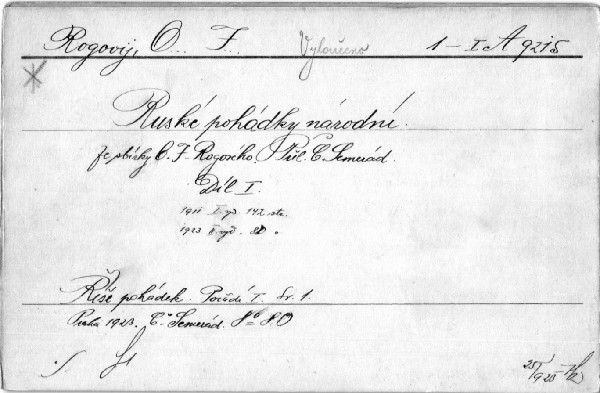 Rogovij, O. F. Vyloučeno 1-I A 9215
Ruské pohádky národní.
Ze sbírky O. F. Rogového. Přel. Č. Semerád.
Díl I.
1911 I. vyd. 142 str.
1923 II. vyd. 80 "
Říše pohádek. Pořadí I. Sv. 1.
Praha 1923. Č. Semerád. 8° 80